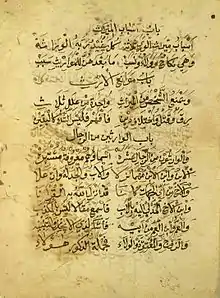 باب اسباب الميراث
اسباب ميراث الورى ثلاثه كل يفيد ربه الوراثه
وهي نكاح وولاء ونسب ما بعدهن للمواريث سبب
باب موانع الارث
ويمنع الشخص من الميراث واحدة من علل ثلاث
رق وقتل واختلاف دين فافهم فليس الشك كاليقين
باب الوارثين من الرجال
والوارثون من الرجال عشره اسماؤهم معروفة مشتهره
الابن وابن الابن مهما نزلا والاب والجد له وان علا
والاخ من اي الجهات كانا قد انزل الله به القرآنا
وابن الاخ المدلي اليه بالاب فاسمع مقالا ليس بالمكذب
والعم وابن العم من ابيه
والزوج والمعتق ذو الولاء فجملة الذكور هؤلاء